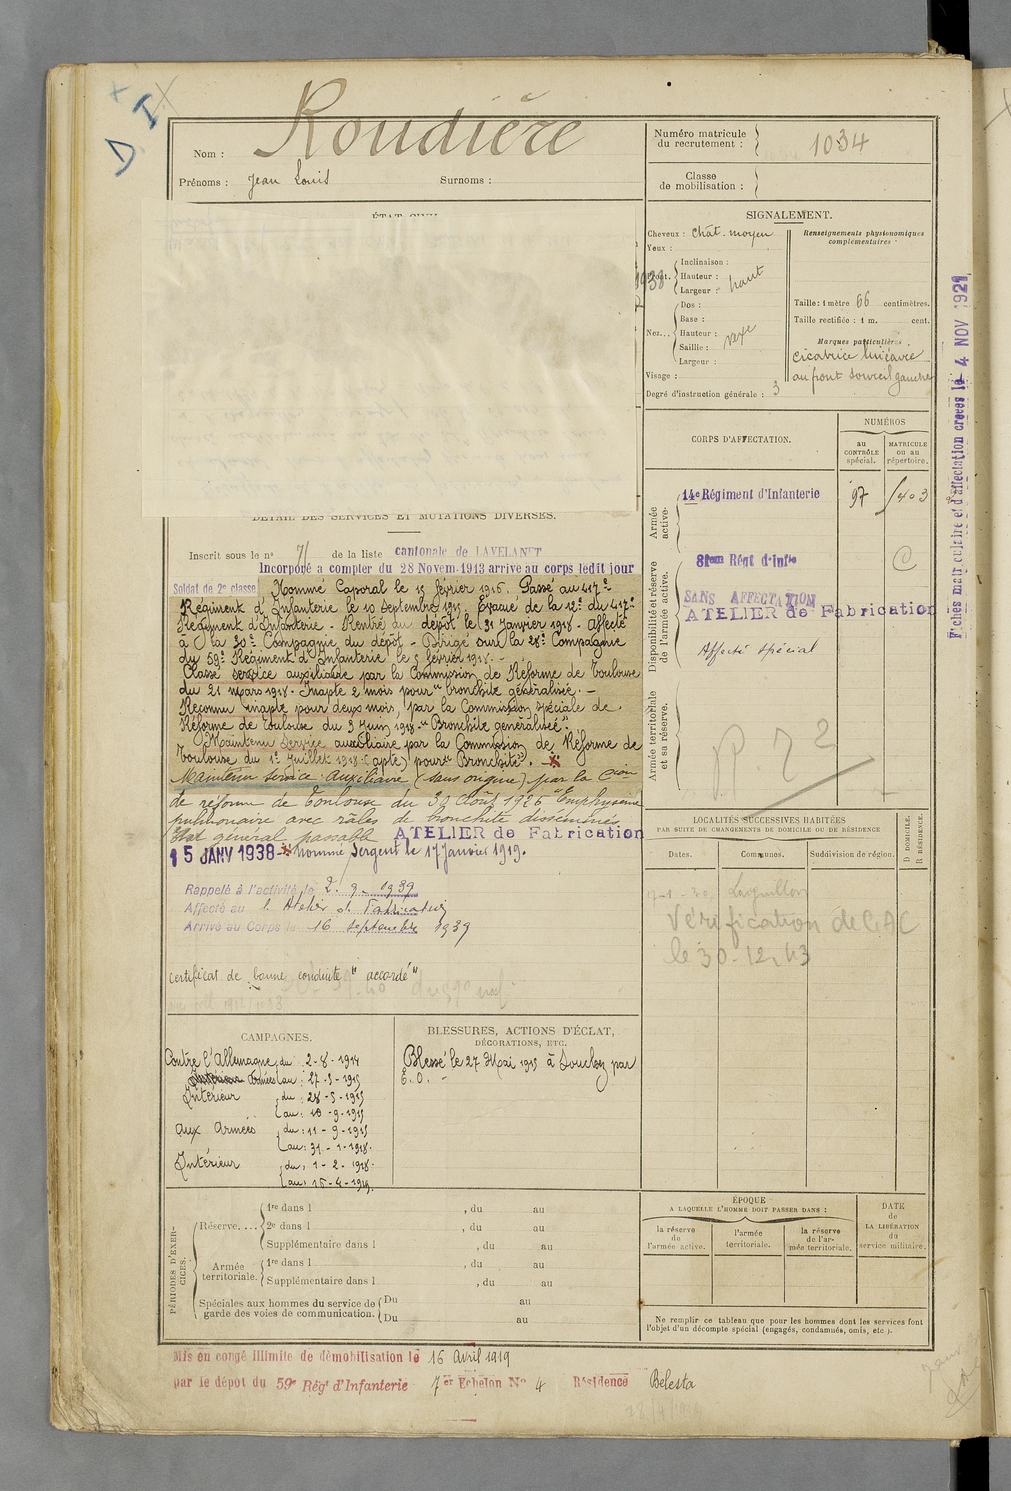 D I
Roudière
Nom :
Prénoms : Jean Louis Surnoms :
Numéro matricule
du recrutement : 1034
Classe
de mobilisation :
SIGNALEMENT.
Cheveux : chât. moyen
Yeux :
Front.
Inclinaison :
Hauteur : haut
Largeur :
Nez...
Dos :
Base :
Hauteur :
Saillie :
Largeur :
Visage :
Degré d'instruction générale : 3
Renseignements physionomiques
complémentaires :
Taille : 1 mètre 66 centimètres.
Taille rectifiée : 1 m. cent.
Marques particulières :
cicatrice linéaire
au front sourcil gauche
Fiches matriculaire et d'affectation créées le 4 NOV 1921
ÉTAT CIVIL
1938
CORPS D'AFFECTATION.
NUMÉROS
au
CONTRÔLE
spécial.
MATRICULE
ou au
répertoire.
Armée
active.
14e Régiment d'Infanterie 97 403
Disponibilité et réserve
de l'armée active.
81em Régt d'Infie
SANS AFFECTATION
ATELIER de Fabrication
Affecté spécial
Armée territoriale
et sa réserve.
DÉTAIL DES SERVICES ET MUTATIONS DIVERSES.
Inscrit sous le n° 71 de la liste cantonale de LAVELANET
Incorporé à compter du 28 Novem. 1913 arrivé au corps ledit jour
Soldat de 2e classe Nommé Caporal le 15 février 1915. Passé au 417e
Régiment d'Infanterie le 10 septembre 1915. Evacué de la 12e du 417e
Régiment d'Infanterie - Rentré au dépôt le 31 Janvier 1918 - Affecté
à la 30e Compagnie du dépôt - Dirigé sur la 28e Compagnie
du 59e Régiment d'Infanterie le 5 février 1918. -
Classé service auxiliaire par la Commission de Réforme de Toulouse
du 21 mars 1918. Inapte 2 mois pour "bronchite généralisée. -
Reconnu inapte pour deux mois, par la Commission spéciale de
Réforme de Toulouse du 3 Juin 1918 "Bronchite généralisée"
Maintenu service auxiliaire par la Commission de Réforme de
Toulouse du 1er Juillet 1918 (apte) pour "Bronchite".
Maintenu service auxiliaire (sans origine) par la Cion
de réforme de Toulouse du 30 Août 1926 "Emphysème
pulmonaire avec râles de bronchite disséminés
Etat général passable ATELIER de Fabrication
15 JANV 1938 - Nommé Sergent le 17 Janvier 1919.
Rappelé à l'activité le 2. 9. 1939
Affecté au l'Atelier de Fabrication
Arrivé au Corps le 16 septembre 1939
certificat de bonne conduite "accordé"
LOCALITÉS SUCCESSIVES HABITÉES
PAR SUITE DE CHANGEMENTS DE DOMICILE OU DE RÉSIDENCE
Dates.
Communes.
Subdivision de région.
D DOMICILE.
R RÉSIDENCE.
Vérification de CAC
le 30-12-43
CAMPAGNES.
Contre l'Allemagne du 2-8-1914
Armées au : 27-5-1915
Intérieur du : 28-5-1915
au : 10-9-1915
aux Armées du : 11-9-1915
au : 31-1-1918.
Intérieur du : 1-2-1918.
au : 15-4-1919.
BLESSURES, ACTIONS D'ÉCLAT,
DÉCORATIONS, ETC.
Blessé le 27 Mai 1915 à Souchez par
E. O. -
PÉRIODES D'EXERCICES.
Réserve....
1re dans l , du au
2e dans l , du au
Supplémentaire dans l , du au
Armée
territoriale.
1re dans l , du au
Supplémentaire dans l , du au
Spéciales aux hommes du service de
garde des voies de communication.
Du au
Du au
ÉPOQUE
A LAQUELLE L'HOMME DOIT PASSER DANS :
la réserve
de
l'armée active.
l'armée
territoriale.
la réserve
de l'ar-
mée territoriale.
DATE
de
LA LIBÉRATION
du
service militaire.
Ne remplir ce tableau que pour les hommes dont les services font
l'objet d'un décompte spécial (engagés, condamnés, omis, etc.).
Mis en congé illimité de démobilisation le 16 Avril 1919
par le dépôt du 59e Régt d'Infanterie 7er Echelon N° 4 Résidence Bélesta